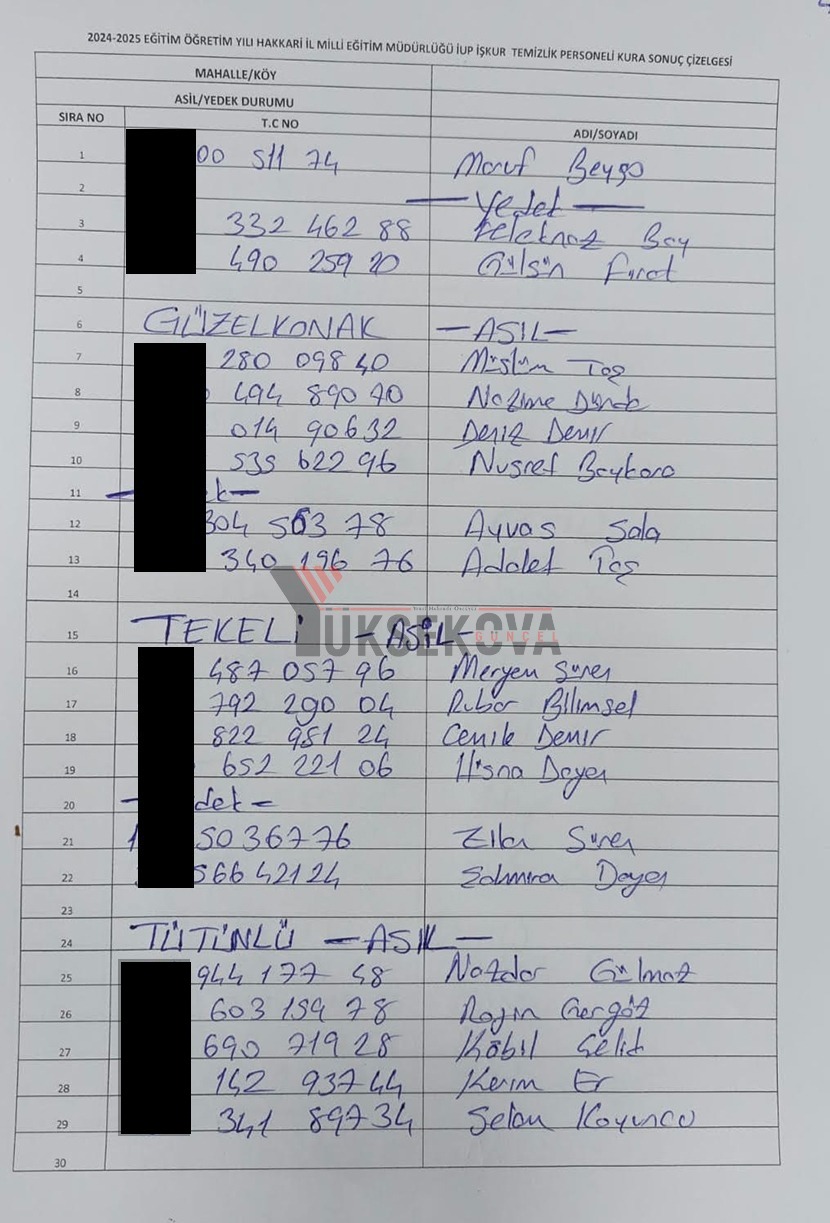 2024-2025 EĞİTİM ÖĞRETİM YILI HAKKARİ İL MİLLİ EĞİTİM MÜDÜRLÜĞÜ İUP İŞKUR TEMİZLİK PERSONELİ KURA SONUÇ ÇİZELGESİ
MAHALLE/KÖY
ASİL/YEDEK DURUMU
SIRA NO T.C NO ADI/SOYADI
1 00 511 74 Maruf Beygo
2 — Yedek —
3 332 462 88 Teletnaz Bay
4 490 259 20 Gülsün Fırat
5
6 GÜZELKONAK —ASIL—
7 280 098 40 Müslüm Taş
8 494 890 70 Nazime Dündar
9 014 90632 Deniz Demir
10 535 622 96 Nusret Baykara
11
12 304 563 78 Ayvas Sala
13 340 196 76 Adalet Taş
14
YÜKSEKOVA
GÜNCEL
15 TEKELİ —ASİL—
16 487 057 96 Meryem Sürer
17 792 290 04 Rubar Bilimsel
18 822 981 24 Cemile Demir
19 652 221 06 Hüsna Dayer
20
21 5036776 Sürer
22 56642124 Dayer
23
24 TÜTÜNLÜ —ASIL—
25 944 177 48 Nazdar Gülmaz
26 603 159 78 Rojin
27 690 719 28 Kabil Çelik
28 142 93744 Kerim Er
29 341 89734 Selan Koyuncu
30